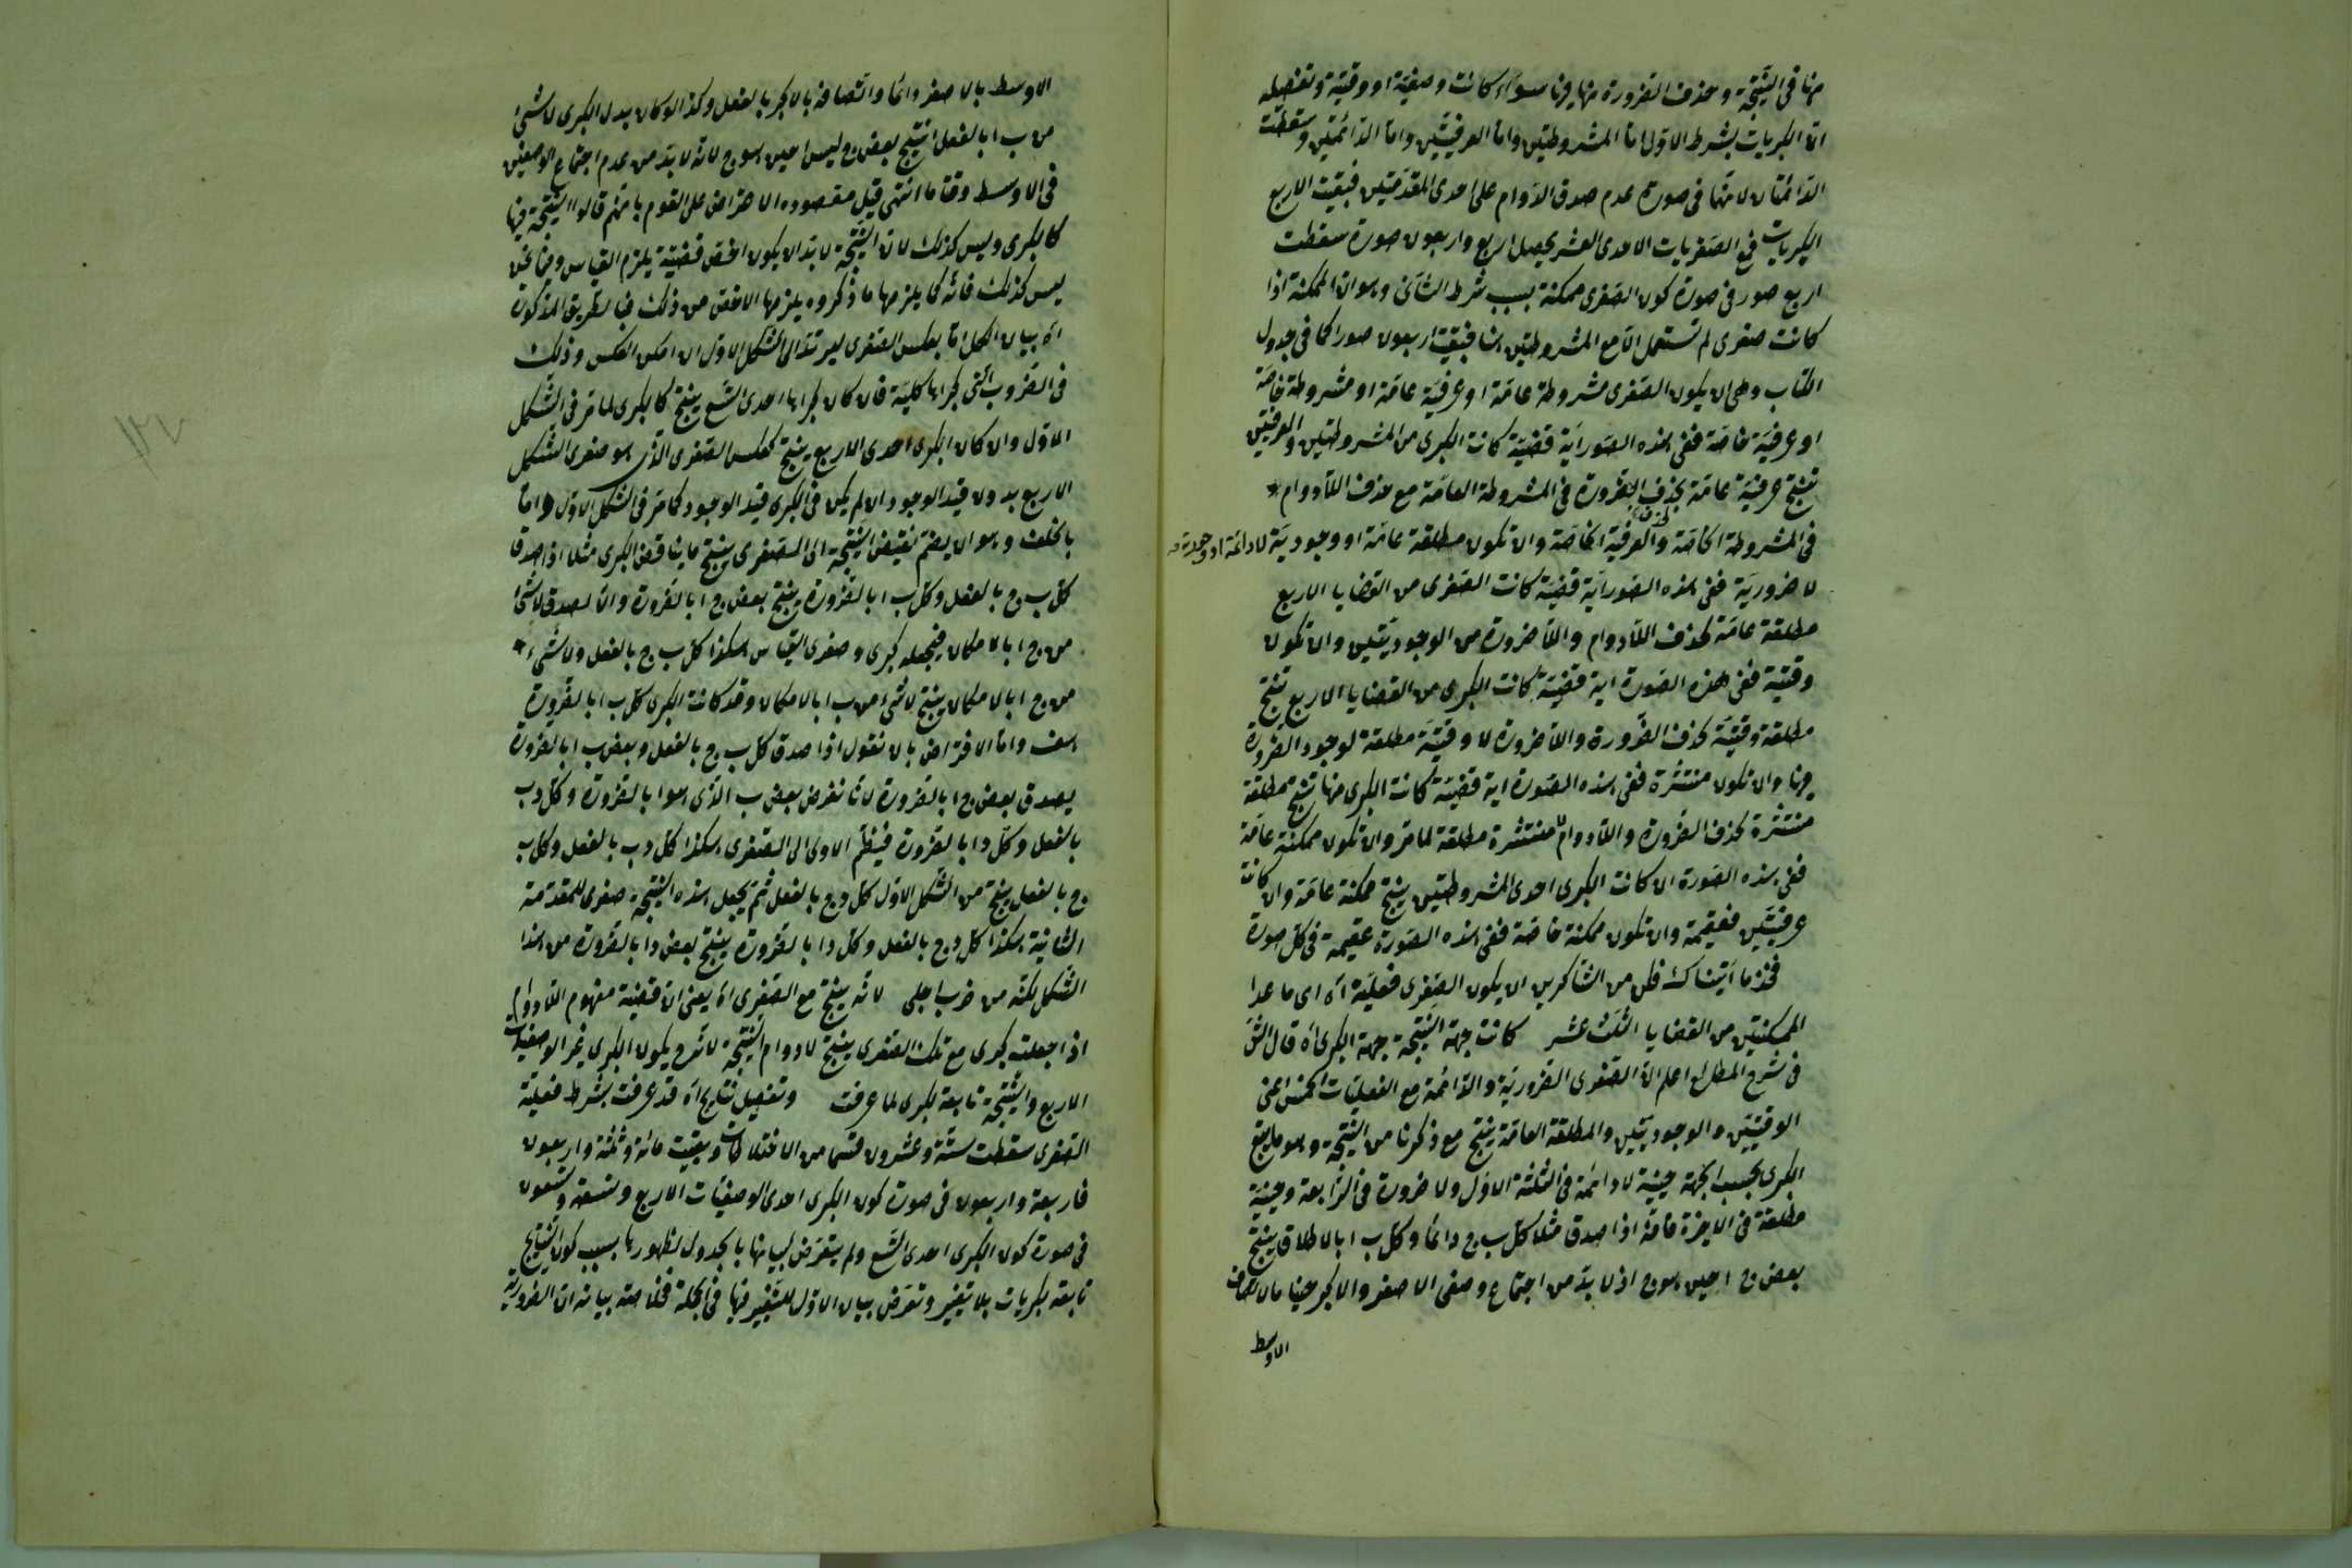 منها فى النتيجة وحذف الضرورة منها يرنا سواء كانت وصفية او وقتية وتفصيله
ان الكبريات بشرط الاول اما المشروطتين واما العرفيتين واما الدائمتين وسقطت
الدائمتان لانها فى صورة عدم صدق الدوام على احدى المقدمتين فبقيت الاربع
الكبريات فى الصغريات الاحدى العشر يحصل اربع واربعون صورة سقطت
اربع صور فى صورة كون الصغرى ممكنة بسبب شرط الثانى وهو ان الممكنة اذا
كانت صغرى لم تستعمل الا مع المشروطتين هنا فبقيت اربعون صورا كما فى جدول
الكتاب وهى ان يكون الصغرى مشروطة عامة او عرفية عامة او مشروطة خاصة
او عرفية خاصة ففى هذه الصور اية قضية كانت الكبرى من المشروطتين والعرفيتين
تنتج عرفية عامة بحذف الضرورة فى المشروطة العامة مع حذف اللادوام
فى المشروطة الخاصة والعرفية الخاصة وان تكون مطلقة عامة او وجودية لا دائمة او وجودية
لا ضرورية ففى هذه الصور اية قضية كانت الصغرى من القضايا الاربع
مطلقة عامة بحذف اللادوام واللا ضرورة من الوجوديتين وان تكون
وقتية ففى هذه الصورة اية قضية كانت الكبرى من القضايا الاربع تنتج
مطلقة وقتية بحذف الضرورة واللا ضرورة لا وقتية مطلقة لوجود الضرورة
فيها وان تكون منتشرة ففى هذه الصورة اية قضية كانت الكبرى منها تنتج مطلقة
منتشرة بحذف الضرورة واللادوام لا منتشرة مطلقة لما مر وان تكون ممكنة عامة
ففى هذه الصورة ان كانت الكبرى احدى المشروطتين ينتج ممكنة عامة وان كانت
عرفيتين فعقيمة وان تكون ممكنة خاصة ففى هذه الصورة عقيمة فى كل صورة
فخذ ما آتيناك وكن من الشاكرين ان يكون الصغرى فعلية اه اى ما عدا
الممكنتين من القضايا الثلث عشر كانت جهة النتيجة جهة الكبرى اه قال الش
فى شرح المطالع اعلم ان الصغرى الضرورية والدائمة مع الفعليات الخمس اعنى
الوقتيتين والوجوديتين والمطلقة العامة ينتج مع ذكرنا من النتيجة وهو ما يتبع
الكبرى بحسب الجهة حينية لا دائمة فى الثلثة الاول ولا ضرورة فى الرابعة وحينية
مطلقة فى الاخيرة فانه اذا صدق مثلا كل ب ج دائما وكل ب ا بالاطلاق ينتج
بعض ج ا حين هو ج اذ لا بد من اجتماع وصفى الاصغر والاكبر حينا ما لاتصاف
الاوسط
الاوسط بالاصغر دائما واتصافه بالاكبر بالفعل وكذا لو كان بدل الكبرى لا شئ
من ب ا بالفعل انتج بعض ج ليس ا حين هو ج لانه لا بد من عدم اجتماع الوصفين
فى الاوسط وقتا ما انتهى قيل مقصوده الاعتراض على القوم بانهم قالوا النتيجة فيها
كالكبرى وليس كذلك لان النتيجة لا بد ان يكون اخص قضية يلزم القياس وفيما نحن
ليس كذلك فانه كما يلزمها ما ذكروه يلزمها الاخص من ذلك فبالطريق المذكورة
اه بيان الكل اما بعكس الصغرى ليرتد الى الشكل الاول ان امكن العكس وذلك
فى الضروب التى كبراها كلية فان كان كبراها احدى التسع ينتج كالكبرى لما مر فى الشكل
الاول وان كان الكبرى احدى الاربع ينتج كعكس الصغرى الذى هو صغرى الشكل
الاربع بدون قيد الوجود ان لم يكن فى الكبرى قيد الوجود كما مر فى الشكل الاول واما
بالخلف وهو ان يضم نقيض النتيجة الى الصغرى ينتج ما يناقض الكبرى مثلا اذا صدق
كل ب ج بالفعل وكل ب ا بالضرورة ينتج بعض ج ا بالضرورة والا لصدق لا شئ
من ج ا بالامكان فنجعله كبرى وصغرى القياس هكذا كل ب ج بالفعل ولا شئ
من ج ا بالامكان ينتج لا شئ من ب ا بالامكان وقد كانت الكبرى كل ب ا بالضرورة
هف واما الافتراض بان نقول اذا صدق كل ب ج بالفعل وبعض ب ا بالضرورة
يصدق بعض ج ا بالضرورة لانا نفرض بعض ب الذى هو ا بالضرورة د وكل د ب
بالفعل وكل د ا بالضرورة فيضم الاولى الى الصغرى هكذا كل د ب بالفعل وكل ب
ج بالفعل ينتج من الشكل الاول كل د ج بالفعل ثم يجعل هذه النتيجة صغرى للمقدمة
الثانية هكذا كل د ج بالفعل وكل د ا بالضرورة ينتج بعض د ا بالضرورة من هذا
الشكل لكنه من ضرب اجلى لانه ينتج مع الصغرى اه يعنى ان قضية مفهوم اللادوام
اذا جعلت كبرى مع تلك الصغرى ينتج لا دوام النتيجة لانه ح يكون الكبرى غير الوصفيات
الاربع والنتيجة تابعة لكبرى لما عرفت وتفصيل نتايج اه قد عرفت بشرط فعلية
الصغرى سقطت ستة وعشرون قسما من الاختلاطات وبقيت مائة وثلثة واربعون
فاربعة واربعون فى صورة كون الكبرى احدى الوصفيات الاربع وتسعة وتسعون
فى صورة كون الكبرى احدى التسع ولم يتعرض لبيانها بالجدول لظهورها بسبب كون النتايج
تابعة لكبريات بلا تغيير وتعرض بيان الاول للتغيير فيها فى الجملة فخلاصة بيانه ان الضرورية